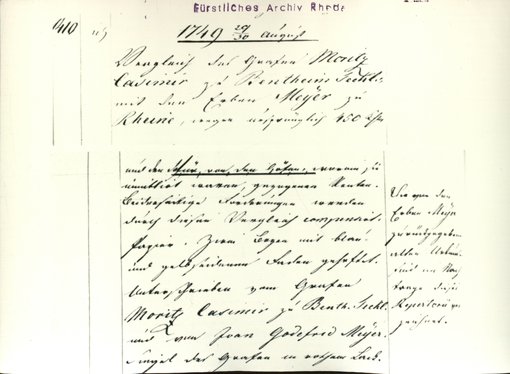 Fürstliches Archiv Rheda
0410
1749 29/30 August
Vergleich des Grafen Moritz
Casimir zu Bentheim Teckl.
mit den Erben Meÿer zu
Rheine, wegen ursprünglich 450 Rthr
und den Thür, vor, den Höfen,
gezogenen Renten.
Beiderseitige Forderungen werden
durch diesen Vergleich compensirt.
Papier. Zwei Bogen mit blau
und gelbseidenem Faden geheftet.
Unterschrieben vom Grafen
Moritz Casimir zu Benth. Teckl.
und von Joan Godefrid Meÿer.
Siegel des Grafen in rothem Lack.
Die von den
Erben Meÿer
zurückgegeben
alten
sind im
trage dieses
Repertorii ver
zeichnet.